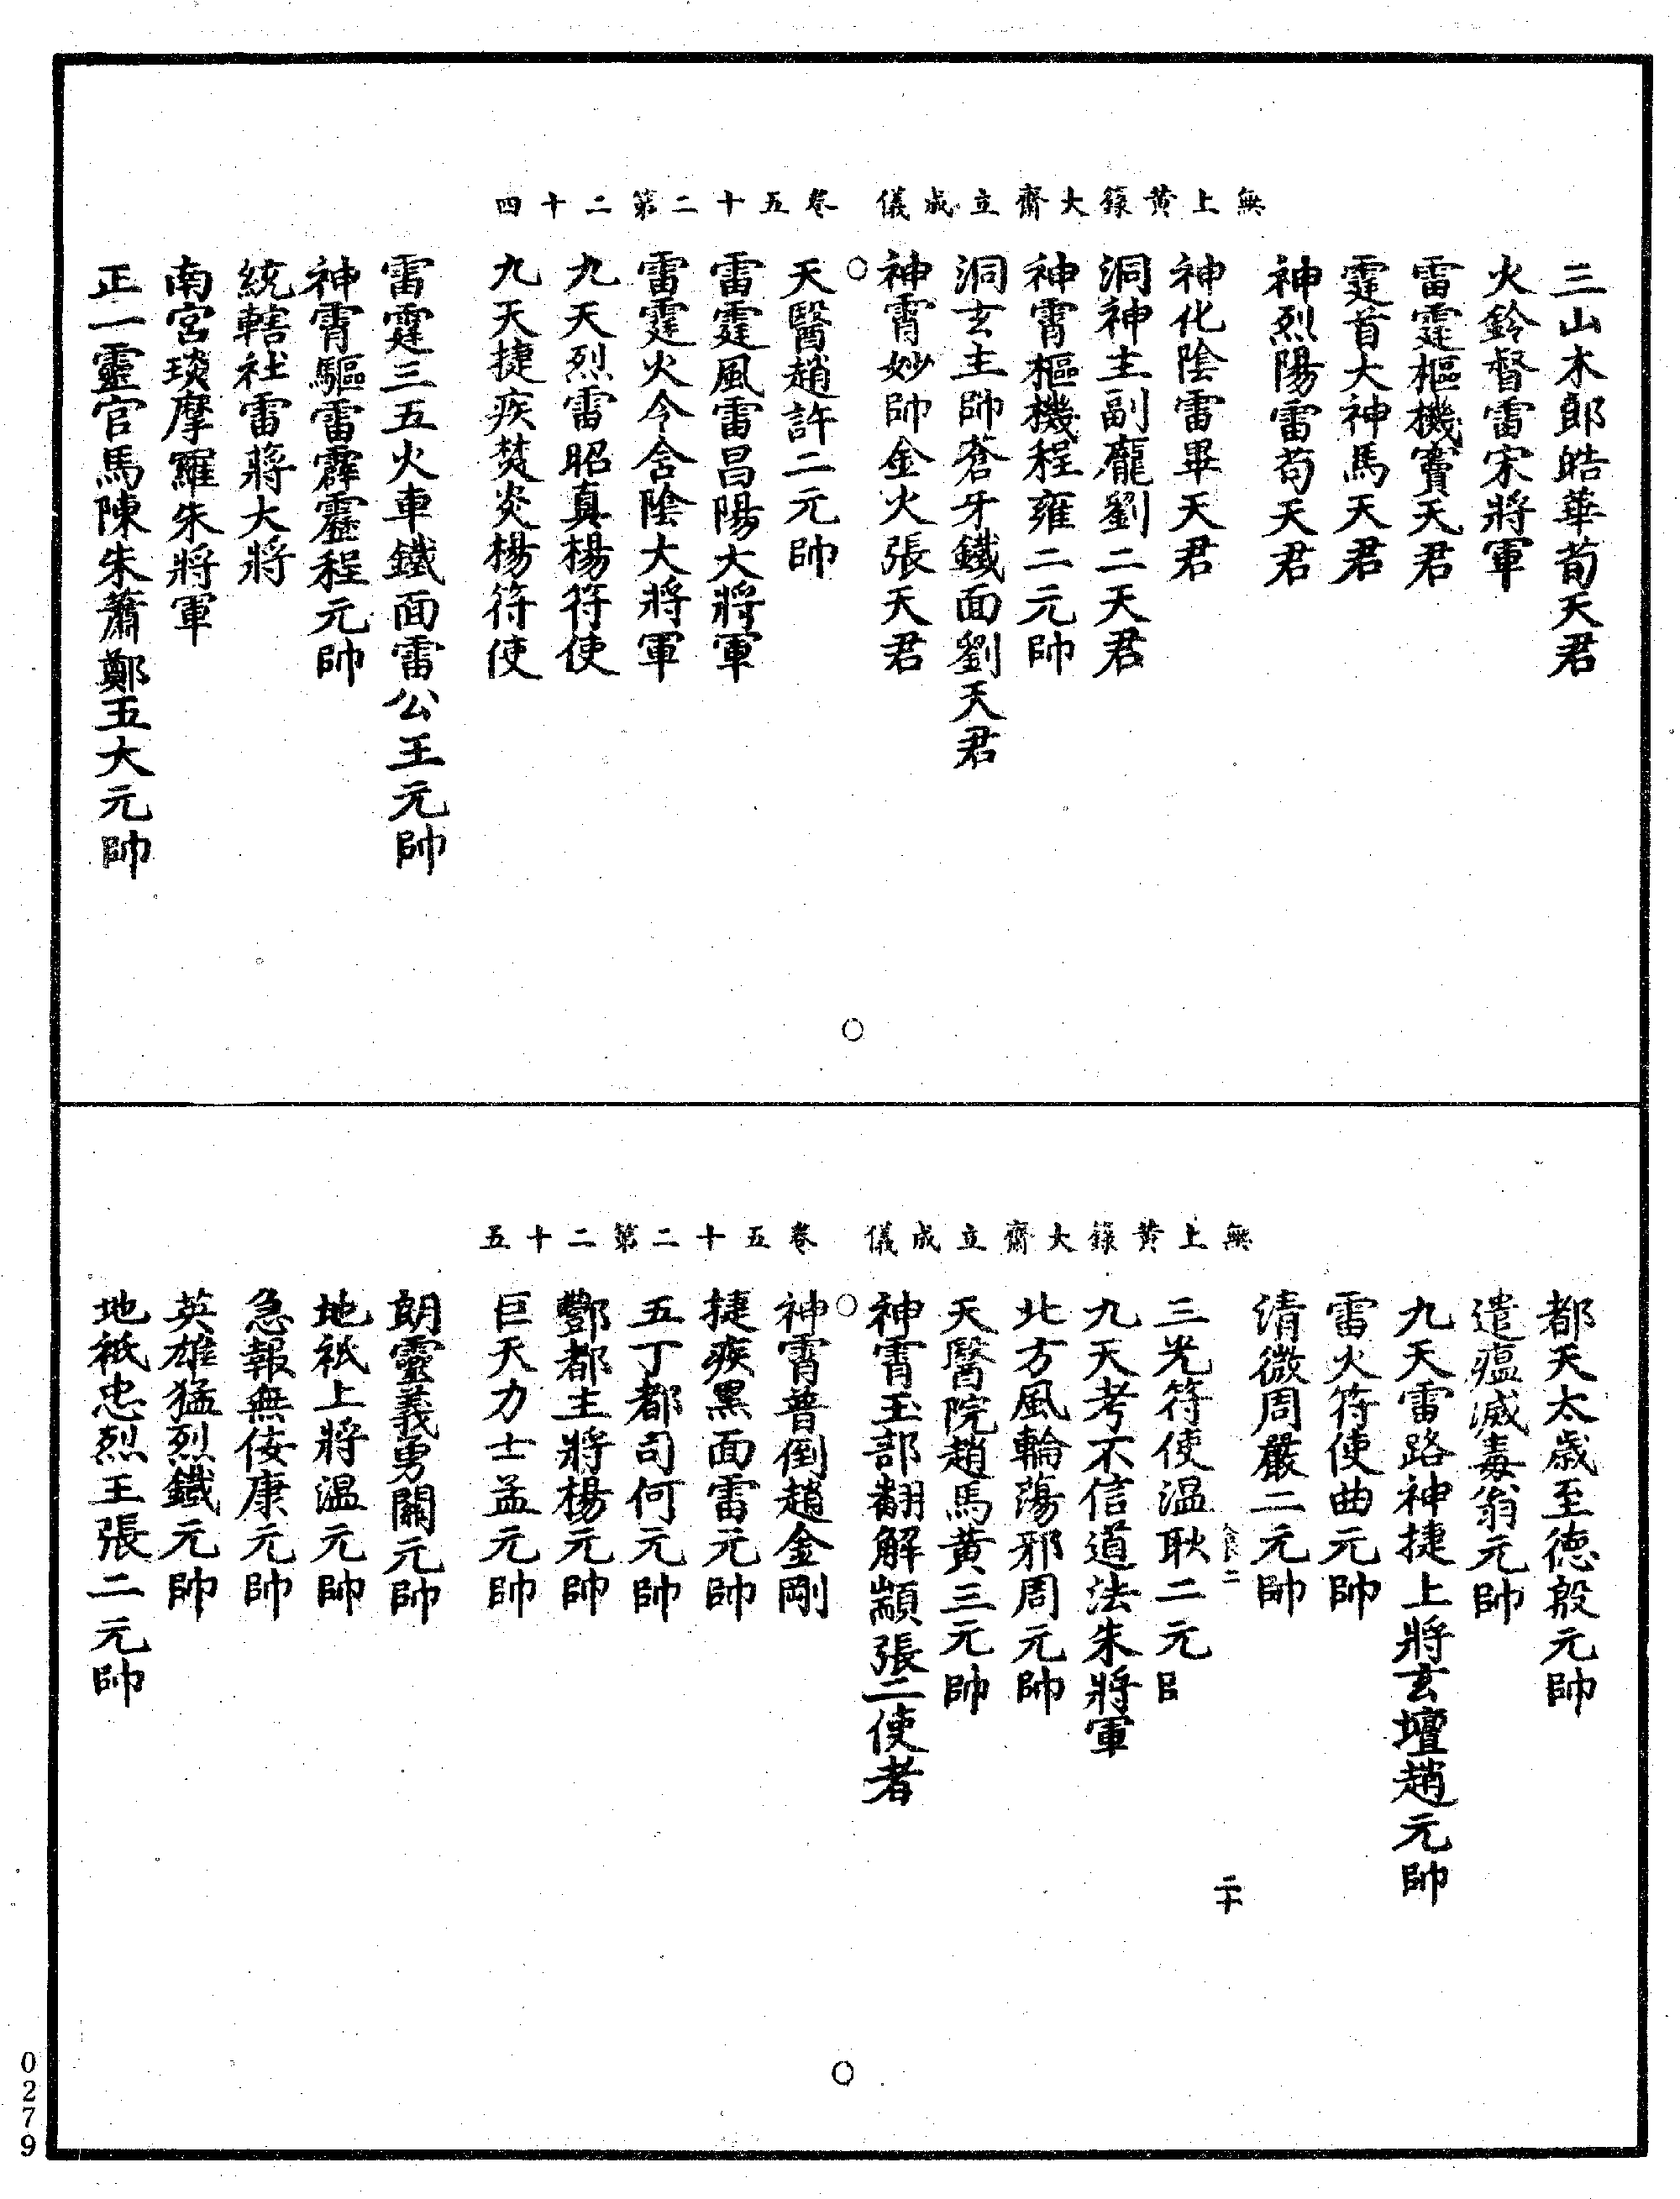 無上黃籙大齋立成儀　卷五十二第二十四
三山木郎皓華荀天君
火鈴督雷宋將軍
雷霆樞機竇天君
霆首大神馬天君
神烈陽雷苟天君
神化陰雷畢天君
洞神主副龐劉二天君
神霄樞機程雍二元帥
洞玄主帥蒼牙鐵面劉天君
神霄妙帥金火張天君
天醫趙許二元帥
雷霆風雷昌陽大將軍
雷霆火令含陰大將軍
九天烈雷昭真楊符使
九天捷疾焚炎楊符使
雷霆三五火車鐵面雷公王元帥
神霄驅雷霹靂程元帥
統轄社雷蔣大將
南宮琰摩羅朱將軍
正一靈官馬陳朱蕭鄭五大元帥
無上黃籙大齋立成儀　卷五十二第二十五
都天太歲至德殷元帥
遣瘟滅毒翁元帥
九天雷路神捷上將玄壇趙元帥
雷火符使曲元帥
清微周嚴二元帥
二十
三光符使溫耿二元
九天考不信道法朱將軍
北方風輪蕩邪周元帥
天醫院趙馬黃三元帥
神霄玉部翻解顓張二使者
神霄普倒趙金剛
捷疾黑面雷元帥
五丁都司何元帥
酆都主將楊元帥
巨天力士孟元帥
朗靈義勇關元帥
地祇上將溫元帥
急報無佞康元帥
英雄猛烈鐵元帥
地祇忠烈王張二元帥
0279